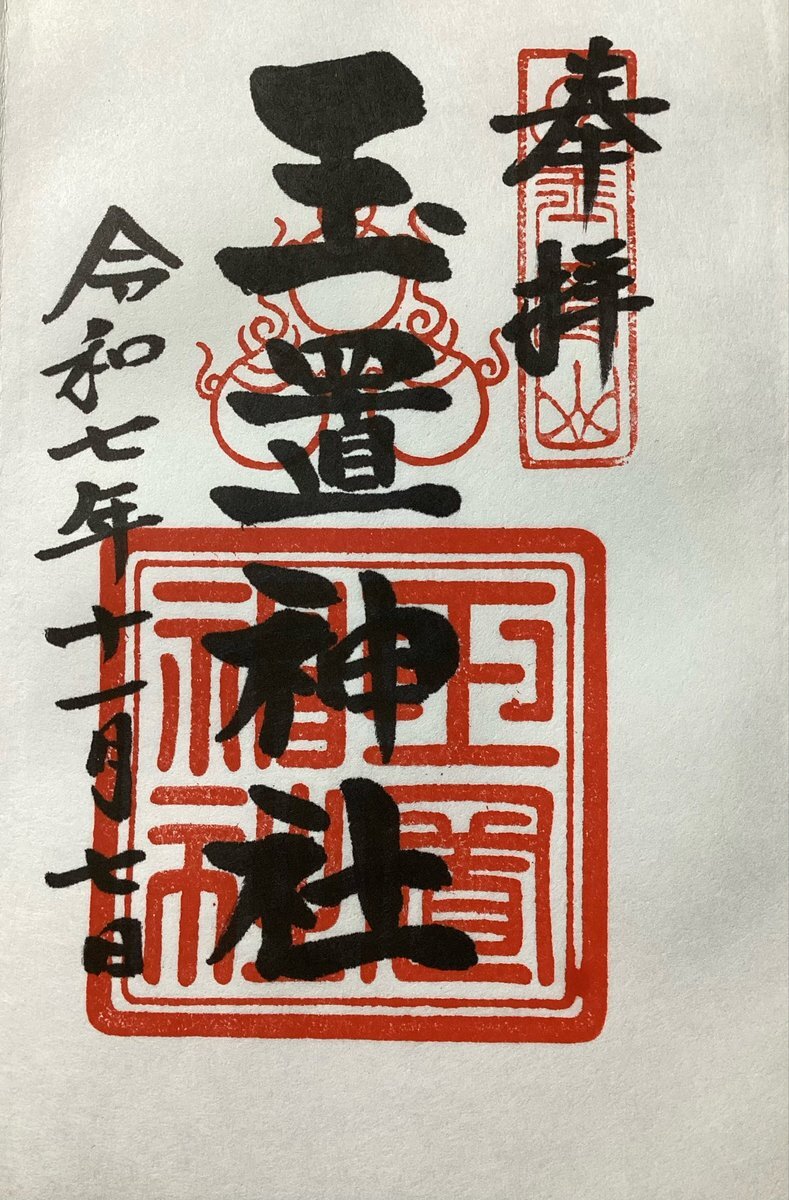 奉拝
玉置神社
令和七年十一月七日
玉置神社